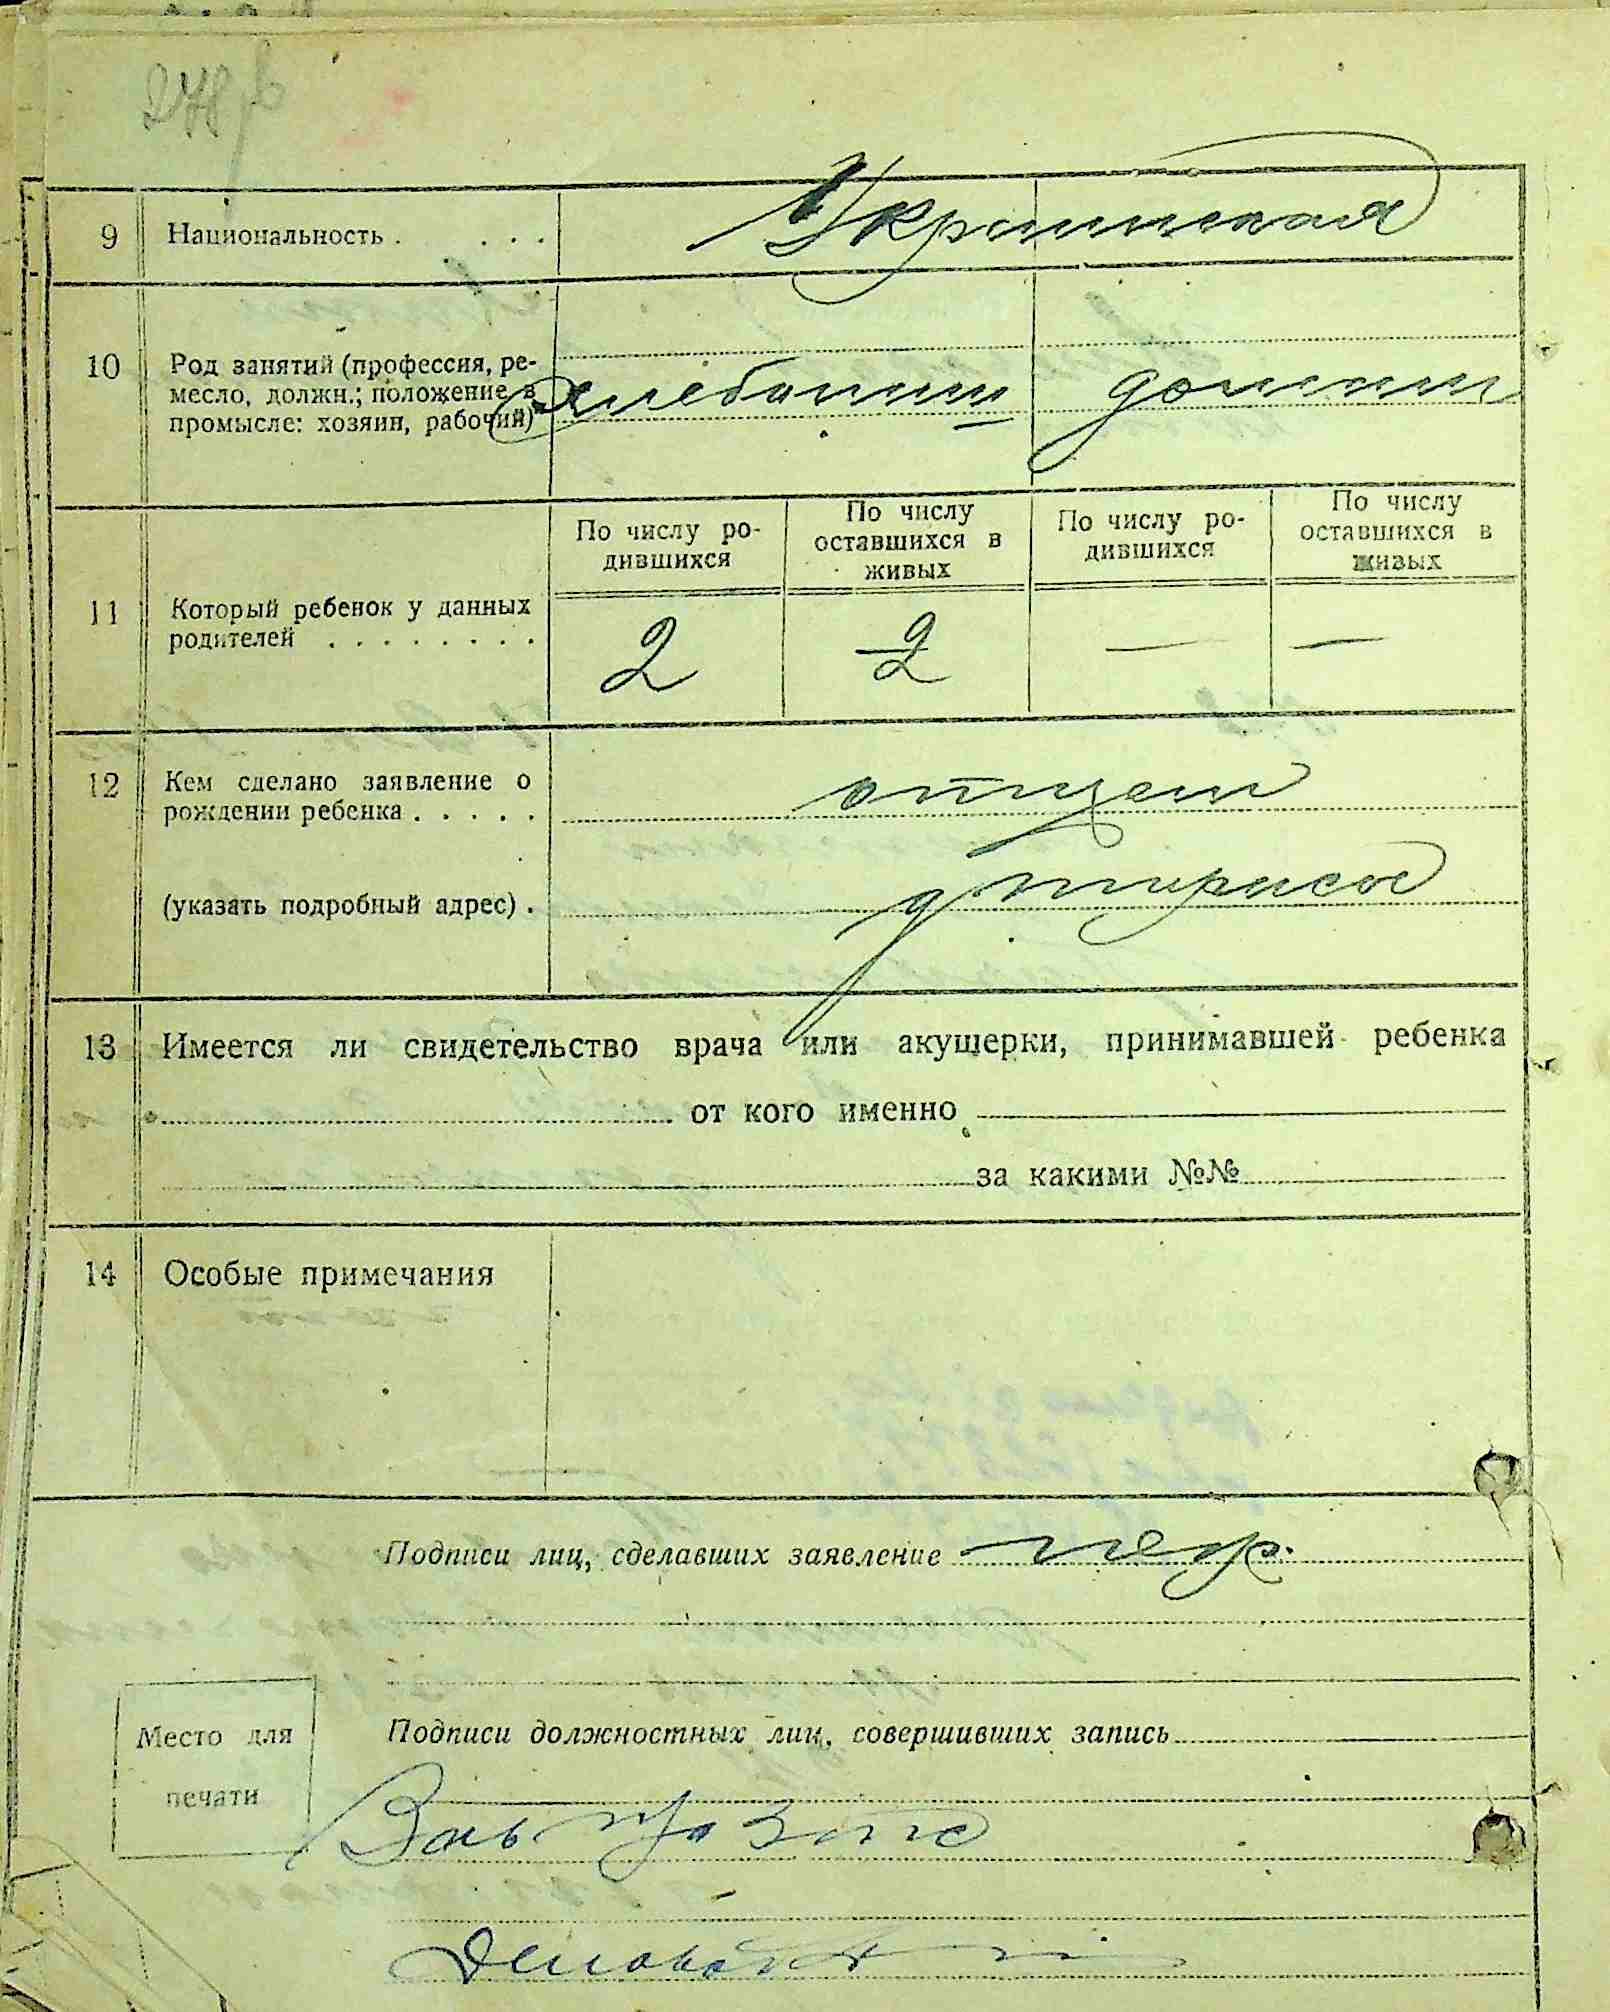 278
9 Национальность . . . . Украинская
10 Род занятий (профессия, ре-
месло, должн.; положение в
промысле: хозяин, рабочий)
хлебопаш домашн
11 Который ребенок у данных
родителей . . . . . . . .
По числу ро-
дившихся
По числу
оставшихся в
живых
По числу ро-
дившихся
По числу
оставшихся в
живых
2 2 — —
12 Кем сделано заявление о
рождении ребенка . . . . .
отцем
(указать подробный адрес) .
13 Имеется ли свидетельство врача или акушерки, принимавшей ребенка
от кого именно
за какими №№
14 Особые примечания
Подписи лиц, сделавших заявление
Место для
печати
Подписи должностных лиц, совершивших запись